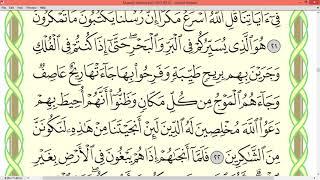 فِىٓ ءَايَاتِنَا قُلِ ٱللَّهُ أَسْرَعُ مَكْرًا إِنَّ رُسُلَنَا يَكْتُبُونَ مَا تَمْكُرُونَ
٢١ هُوَ ٱلَّذِى يُسَيِّرُكُمْ فِى ٱلْبَرِّ وَٱلْبَحْرِ حَتَّىٰٓ إِذَا كُنتُمْ فِى ٱلْفُلْكِ
وَجَرَيْنَ بِهِم بِرِيحٍ طَيِّبَةٍ وَفَرِحُوا۟ بِهَا جَآءَتْهَا رِيحٌ عَاصِفٌ
وَجَآءَهُمُ ٱلْمَوْجُ مِن كُلِّ مَكَانٍ وَظَنُّوٓا۟ أَنَّهُمْ أُحِيطَ بِهِمْ
دَعَوُا۟ ٱللَّهَ مُخْلِصِينَ لَهُ ٱلدِّينَ لَئِنْ أَنجَيْتَنَا مِنْ هَٰذِهِۦ لَنَكُونَنَّ
مِنَ ٱلشَّٰكِرِينَ ٢٢ فَلَمَّآ أَنجَىٰهُمْ إِذَا هُمْ يَبْغُونَ فِى ٱلْأَرْضِ بِغَيْرِ